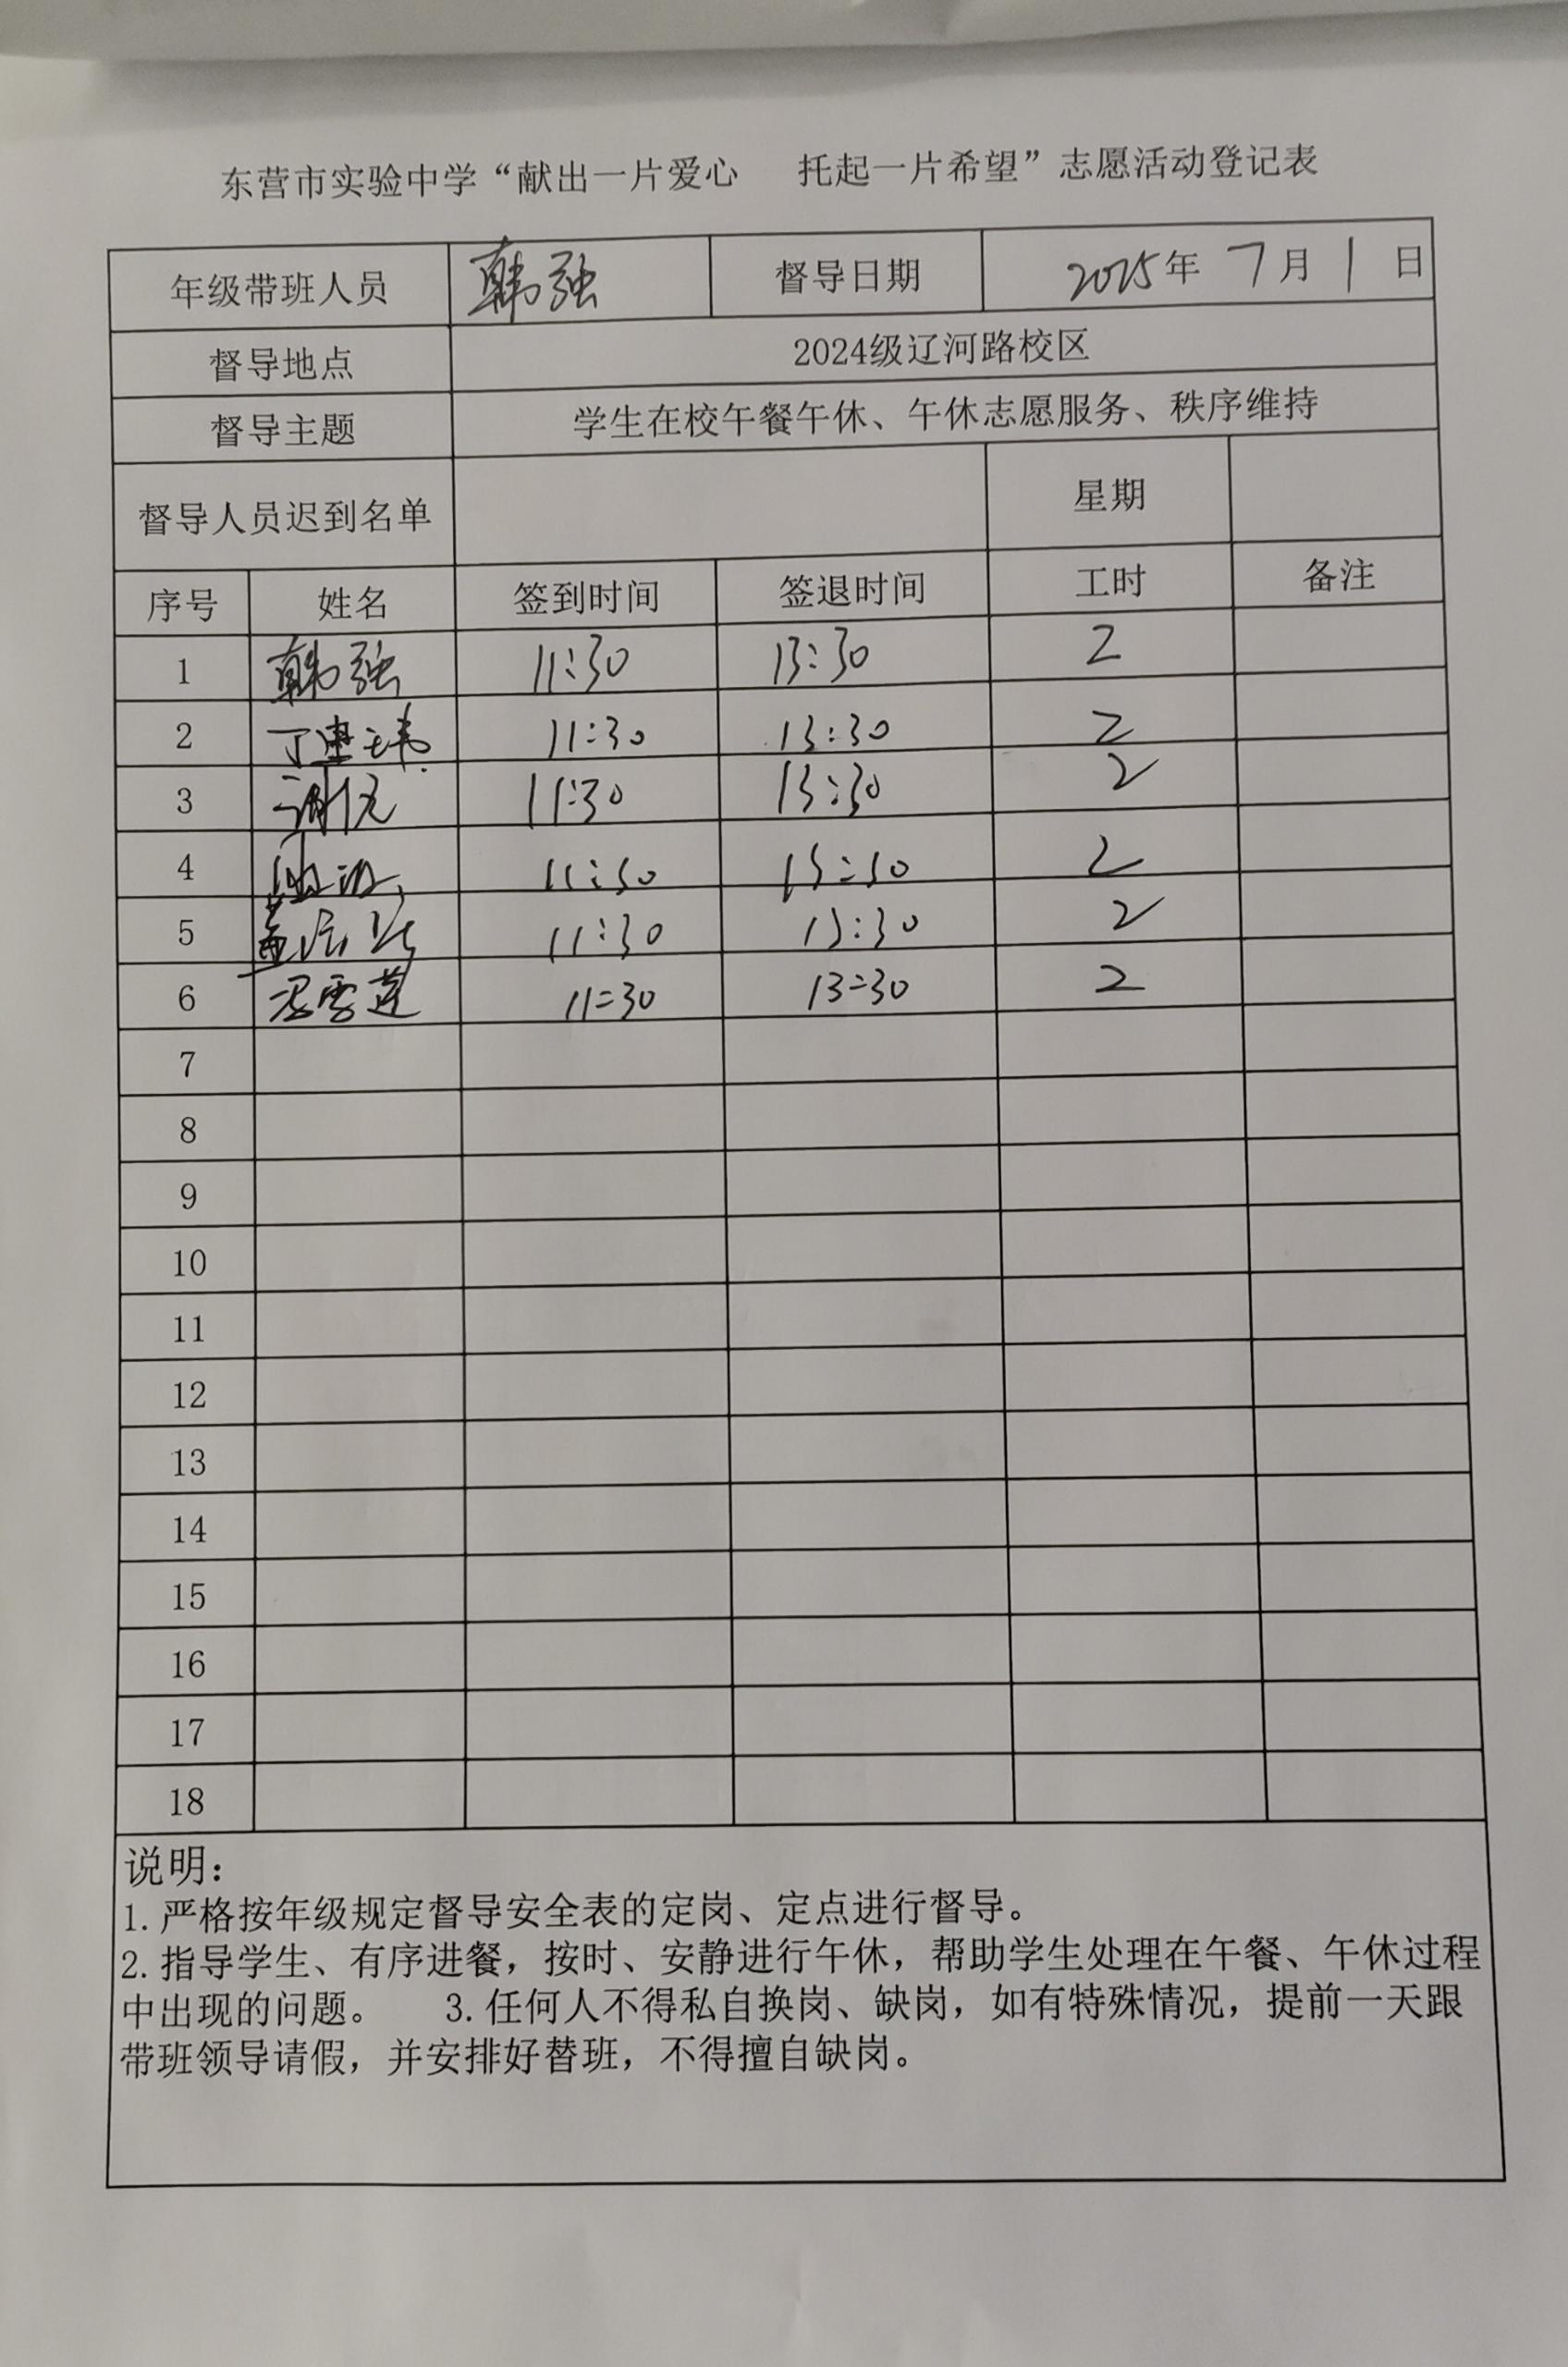 东营市实验中学“献出一片爱心 托起一片希望”志愿活动登记表
年级带班人员 韩强 督导日期 2025年 7月 1 日
督导地点 2024级辽河路校区
督导主题 学生在校午餐午休、午休志愿服务、秩序维持
督导人员迟到名单 星期
序号 姓名 签到时间 签退时间 工时 备注
1 韩强 11:30 13:30 2
2 丁建玮 11:30 13:30 2
3 11:30 13:30 2
4 11:30 13:30 2
5 11:30 13:30 2
6 雪莲 11:30 13:30 2
7
8
9
10
11
12
13
14
15
16
17
18
说明：
1.严格按年级规定督导安全表的定岗、定点进行督导。
2.指导学生、有序进餐，按时、安静进行午休，帮助学生处理在午餐、午休过程
中出现的问题。 3.任何人不得私自换岗、缺岗，如有特殊情况，提前一天跟
带班领导请假，并安排好替班，不得擅自缺岗。